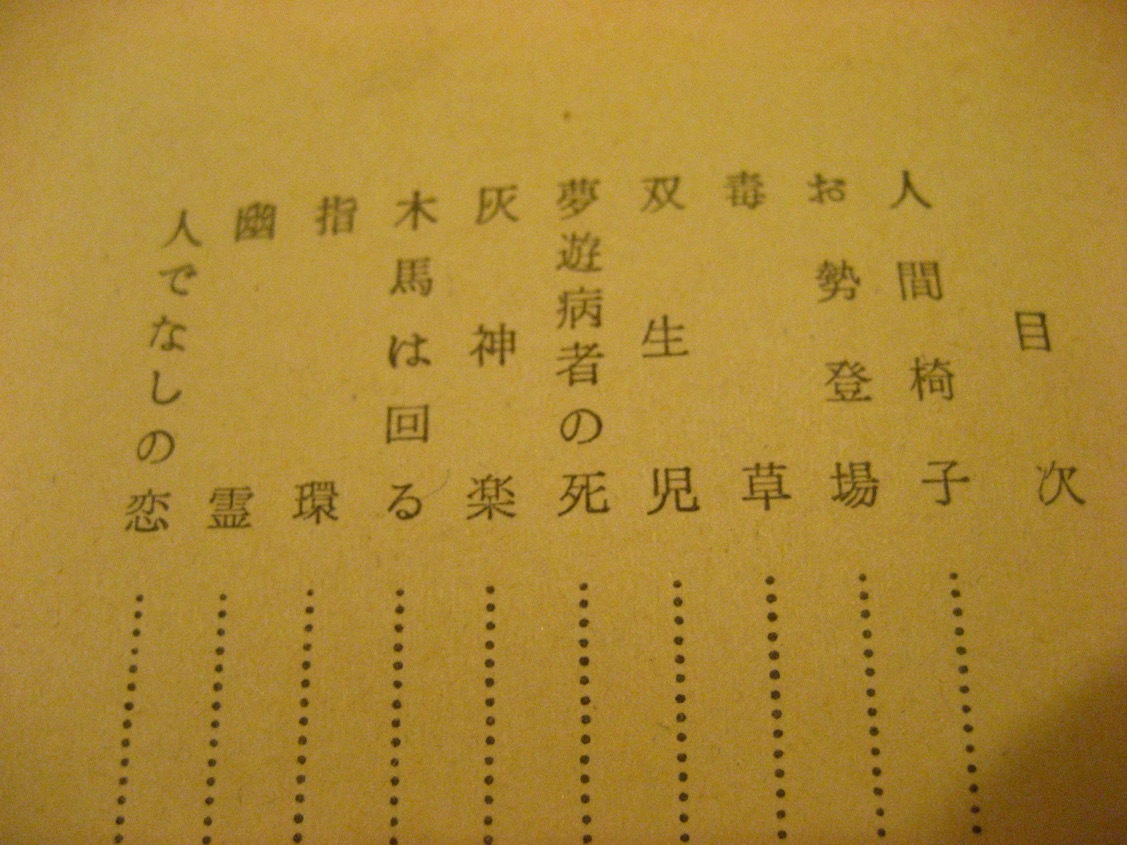 目次
人間椅子
お勢登場
毒草
双生児
夢遊病者の死
灰神楽
木馬は回る
指環
幽霊
人でなしの恋